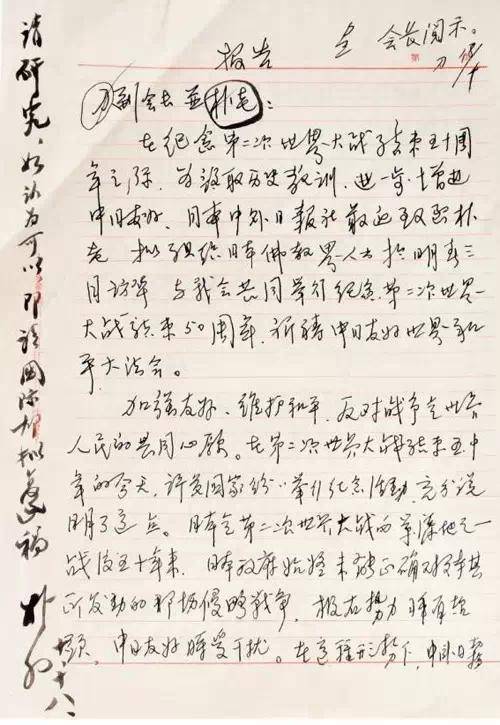 呈 会长阅示。
报告
刀副会长并朴老：
在纪念第二次世界大战结束五十周
年之际，为汲取历史教训，进一步增进
中日友好，日本中外日报社最近致函朴
老 拟组织日本佛教界人士於明春三
月访华 与我会共同举行纪念第二次世界
大战结束50周年，祈祷中日友好世界和
平大法会。
加强友好、维护和平、反对战争是世界
人民的共同心愿。在第二次世界大战结束五十
年的今天，许多国家纷纷举行纪念活动，充分说
明了这点。日本是第二次世界大战的策源地之一
战后五十年来，日本政府始终未能正确对待其
所发动的那场侵略战争，极右势力时有抬
头，中日友好时受干扰。在这种形势下，中外日报
请研究，如认为可以，即请国际部拟复稿
朴初
十、十八